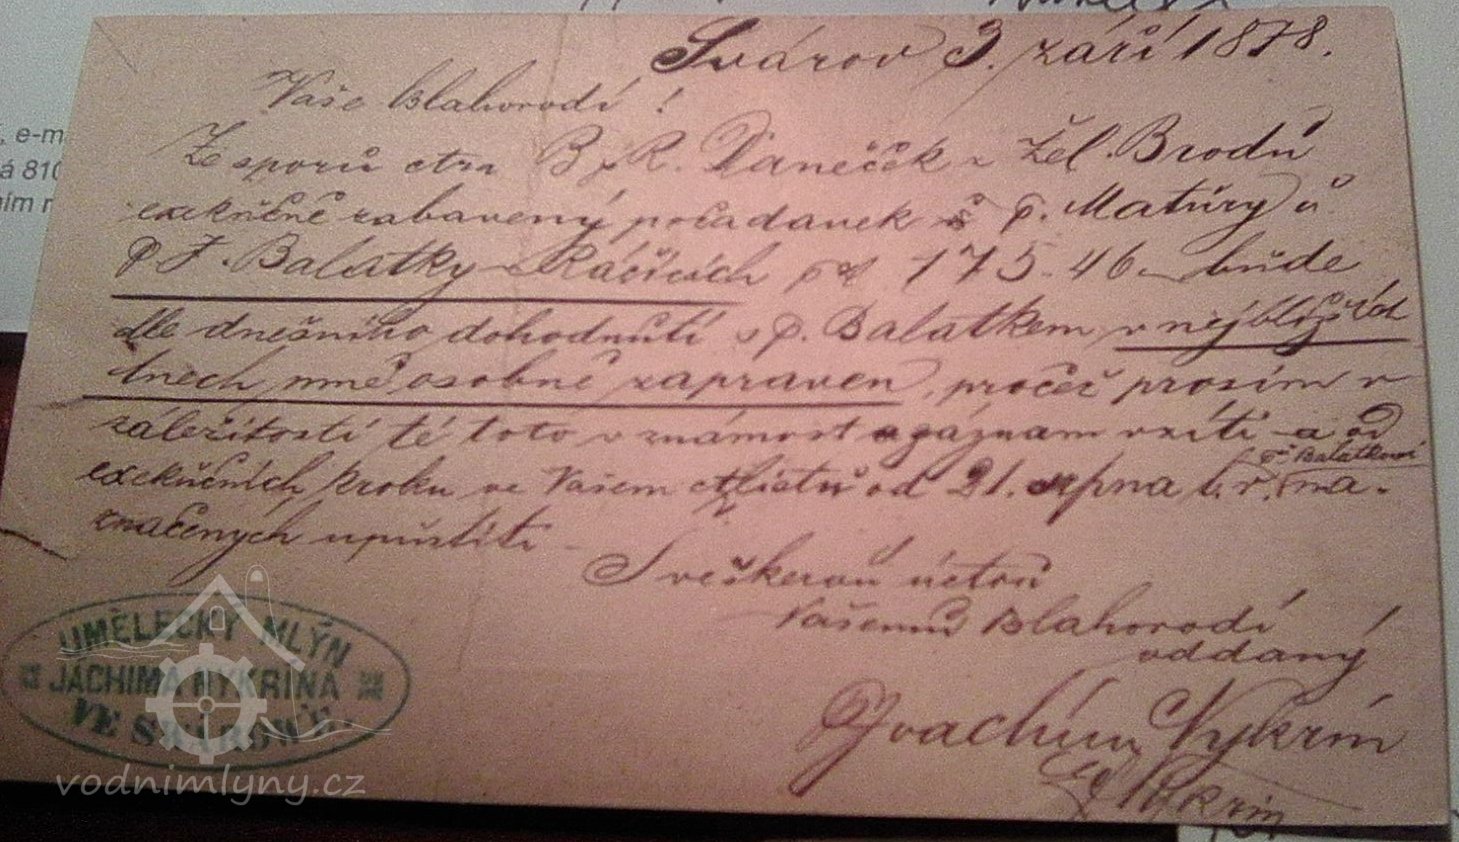 Svárov 3. září 1878.
Vaše Blahorodí!
Ze sporů ctra B & R. Daněček z Žel. Brodu
exekučně zabavený požadavek p. Matúry u
P F. Balatky v Ráčicích pr 175.46 bude
dle dnešního dohodnutí s p. Balatkem v nejbližších
dnech mně osobně zapraven, pročež prosím v
záležitosti té toto v známost vzíti a od
exekučních kroku ve Vašem listu od 21. srpna b.r. p. Balatkovi na-
značených upustiti
S veškerou úctou
Vašemu Blahorodí
oddaný
Joachim Nykrin
Nykrin
UMĚLECKÝ MLÝN
JÁCHIMA NYKRINA
VE SVÁROVĚ.
vodnimlyny.cz
, e-m
á 810
ním r